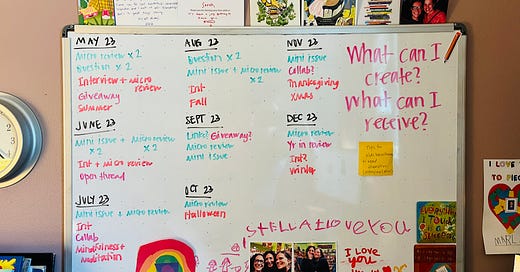 MAY 23
Micro review x 2
Question x 2
Interview + micro
review
Giveaway
Summer
JUNE 23
Mini Issue + Micro review
x 2 x 2
Int + micro review
Open thread
JULY 23
Mini Issue + Micro review
Int
Collab
Mindfulness +
Meditation
AUG 23
Question x 2
Mini Issue + micro review
x 2
Int
Fall
SEPT 23
Links? Giveaway?
Micro review
Mini Issue
OCT 23
Micro review
Halloween
NOV 23
Mini Issue
Collab?
Thanksgiving
Xmas
DEC 23
Micro review
Yr in review
Int?
Winter
What can I
create?
What can I
receive?
STELLA I LOVE YOU
I LOVE
YOU
I LOVE
TO PIE